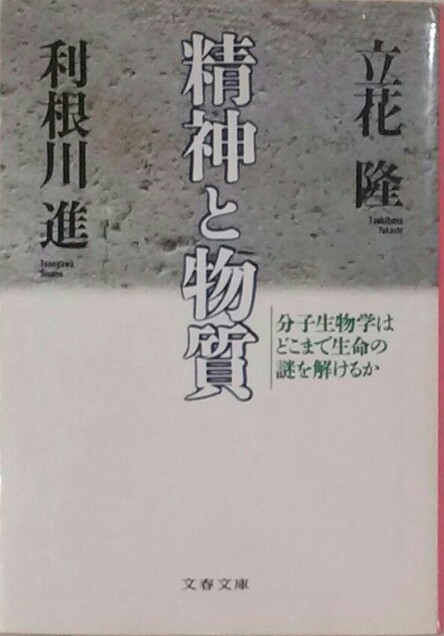 立花 隆
Tachibana
Takashi
精神と物質
利根川 進
Tonegawa
Susumu
分子生物学は
どこまで生命の
謎を解けるか
文春文庫